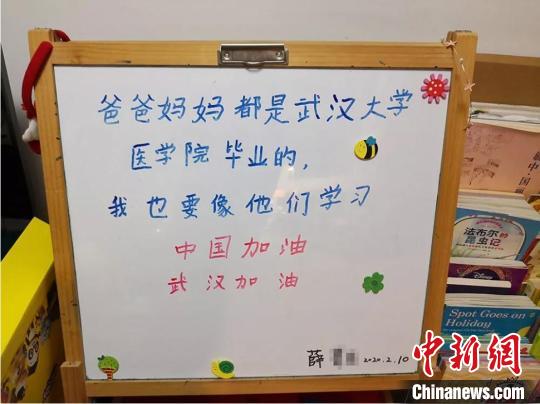 爸爸妈妈都是武汉大学
医学院毕业的，
我也要像他们学习
中国加油
武汉加油
薛
2020.2.10
法布尔的
昆虫记
Disney
Spot Goes on
Holiday
中新网
Chinanews.com